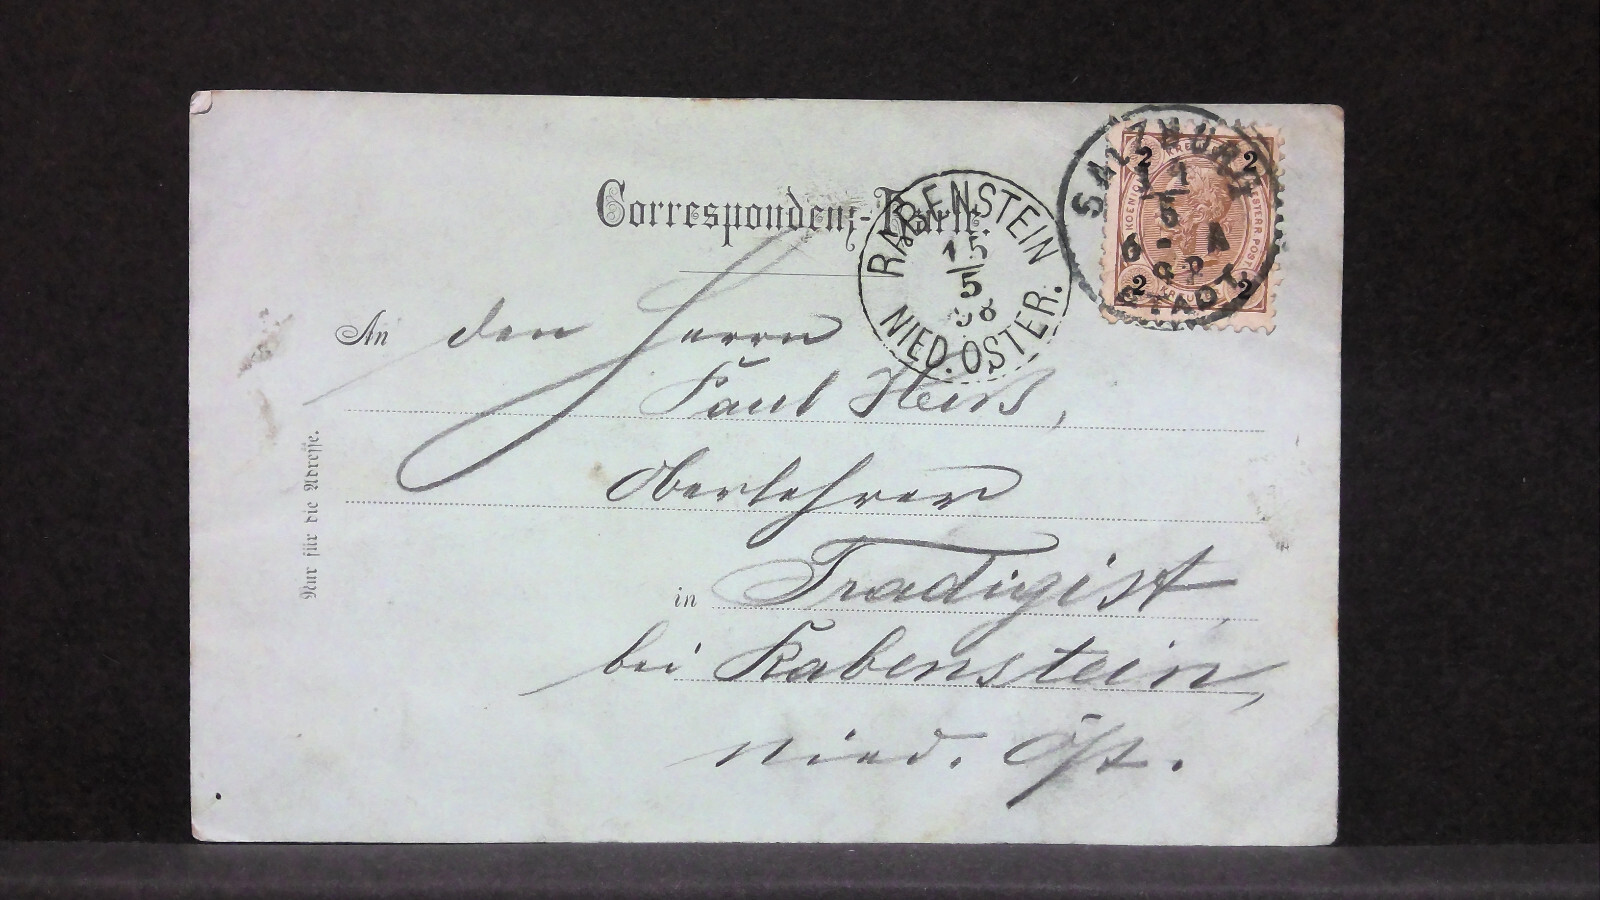 Correspondenz-Karte.
RABENSTEIN
15/5
98
NIED. ÖSTER.
SALZBURG
STADT
2 2
2 2
An den Herrn
Paul Heiß,
Oberlehrer
in Tradigist,
bei Rabenstein,
Nied. Öst.
Nur für die Adresse.